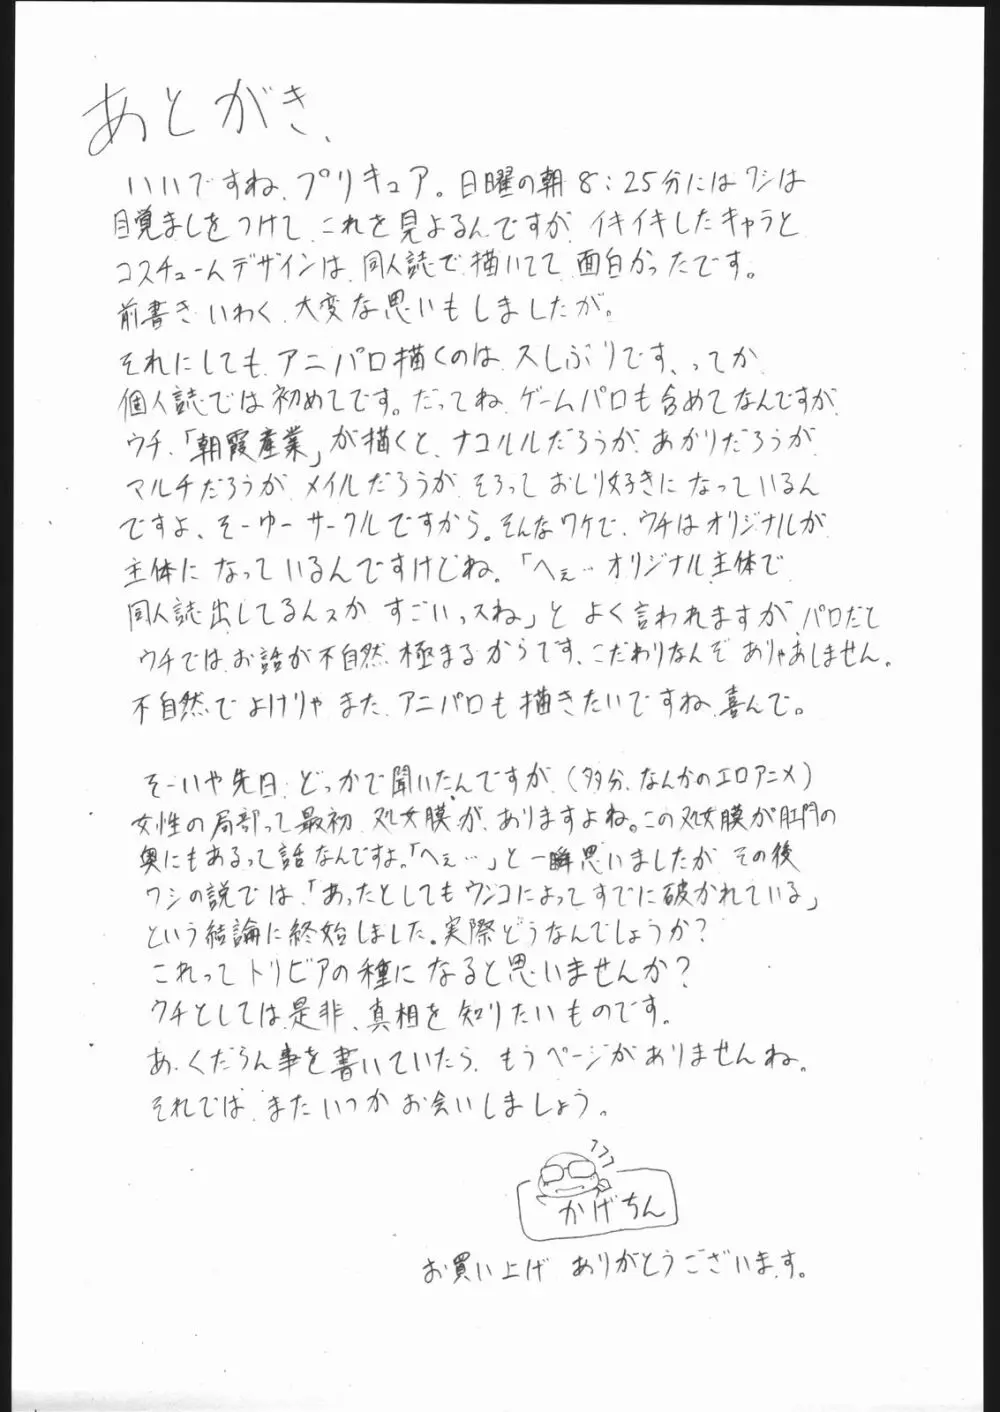 あとがき、
いいですね、プリキュア。日曜の朝8:25分にはワシは
目覚ましをつけて、これを見よるんですが、イキイキしたキャラと
コスチュームデザインは、同人誌で描いてて面白かったです。
前書きいわく、大変な思いもしましたが。
それにしても、アニパロ描くのは久しぶりです、ってか
個人誌では初めてです。だってね、ゲームパロも含めてなんですが、
ウチ、「朝霞産業」が描くと、ナコルルだろうが、あかりだろうが
マルチだろうが、メイルだろうが、そろっておしり好きになっているん
ですよ、そーゆーサークルですから。そんなワケで、ウチはオリジナルが
主体になっているんですけどね。「へぇ…オリジナル主体で
同人誌出してるんスか、すごいっスね」とよく言われますが、パロだと
ウチでは、お話が不自然極まるからです、こだわりなんぞありゃあしません。
不自然でよけりゃまた、アニパロも描きたいですね、喜んで。
そーいや先日、どっかで聞いたんですが、(多分、なんかのエロアニメ)
女性の局部って最初、処女膜が、ありますよね。この処女膜が肛門の
奥にもあるって話なんですよ。「へぇ…」と一瞬思いましたが、その後
ワシの説では、「あったとしてもウンコによってすでに破かれている」
という結論に終始しました。実際どうなんでしょうか?
これってトリビアの種になると思いませんか?
ウチとしては是非、真相を知りたいものです。
あ、くだらん事を書いていたら、もうページがありませんね。
それでは、またいつかお会いしましょう。
フフフ
かげちん
お買い上げありがとうございます。